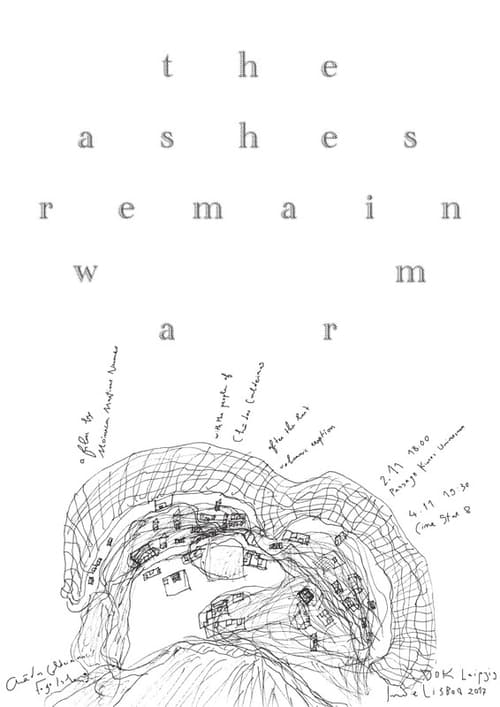 the
ashes
remain
w m
a r
a film by
with the people of
Chã das Caldeiras
after the last
volcanic eruption
2.11 18.00
Passage Kinos Universum
4.11 19.30
Cine Star 8
Chã das Caldeiras
Fogo Island
DOK Leipzig
IndieLISBOA 2017